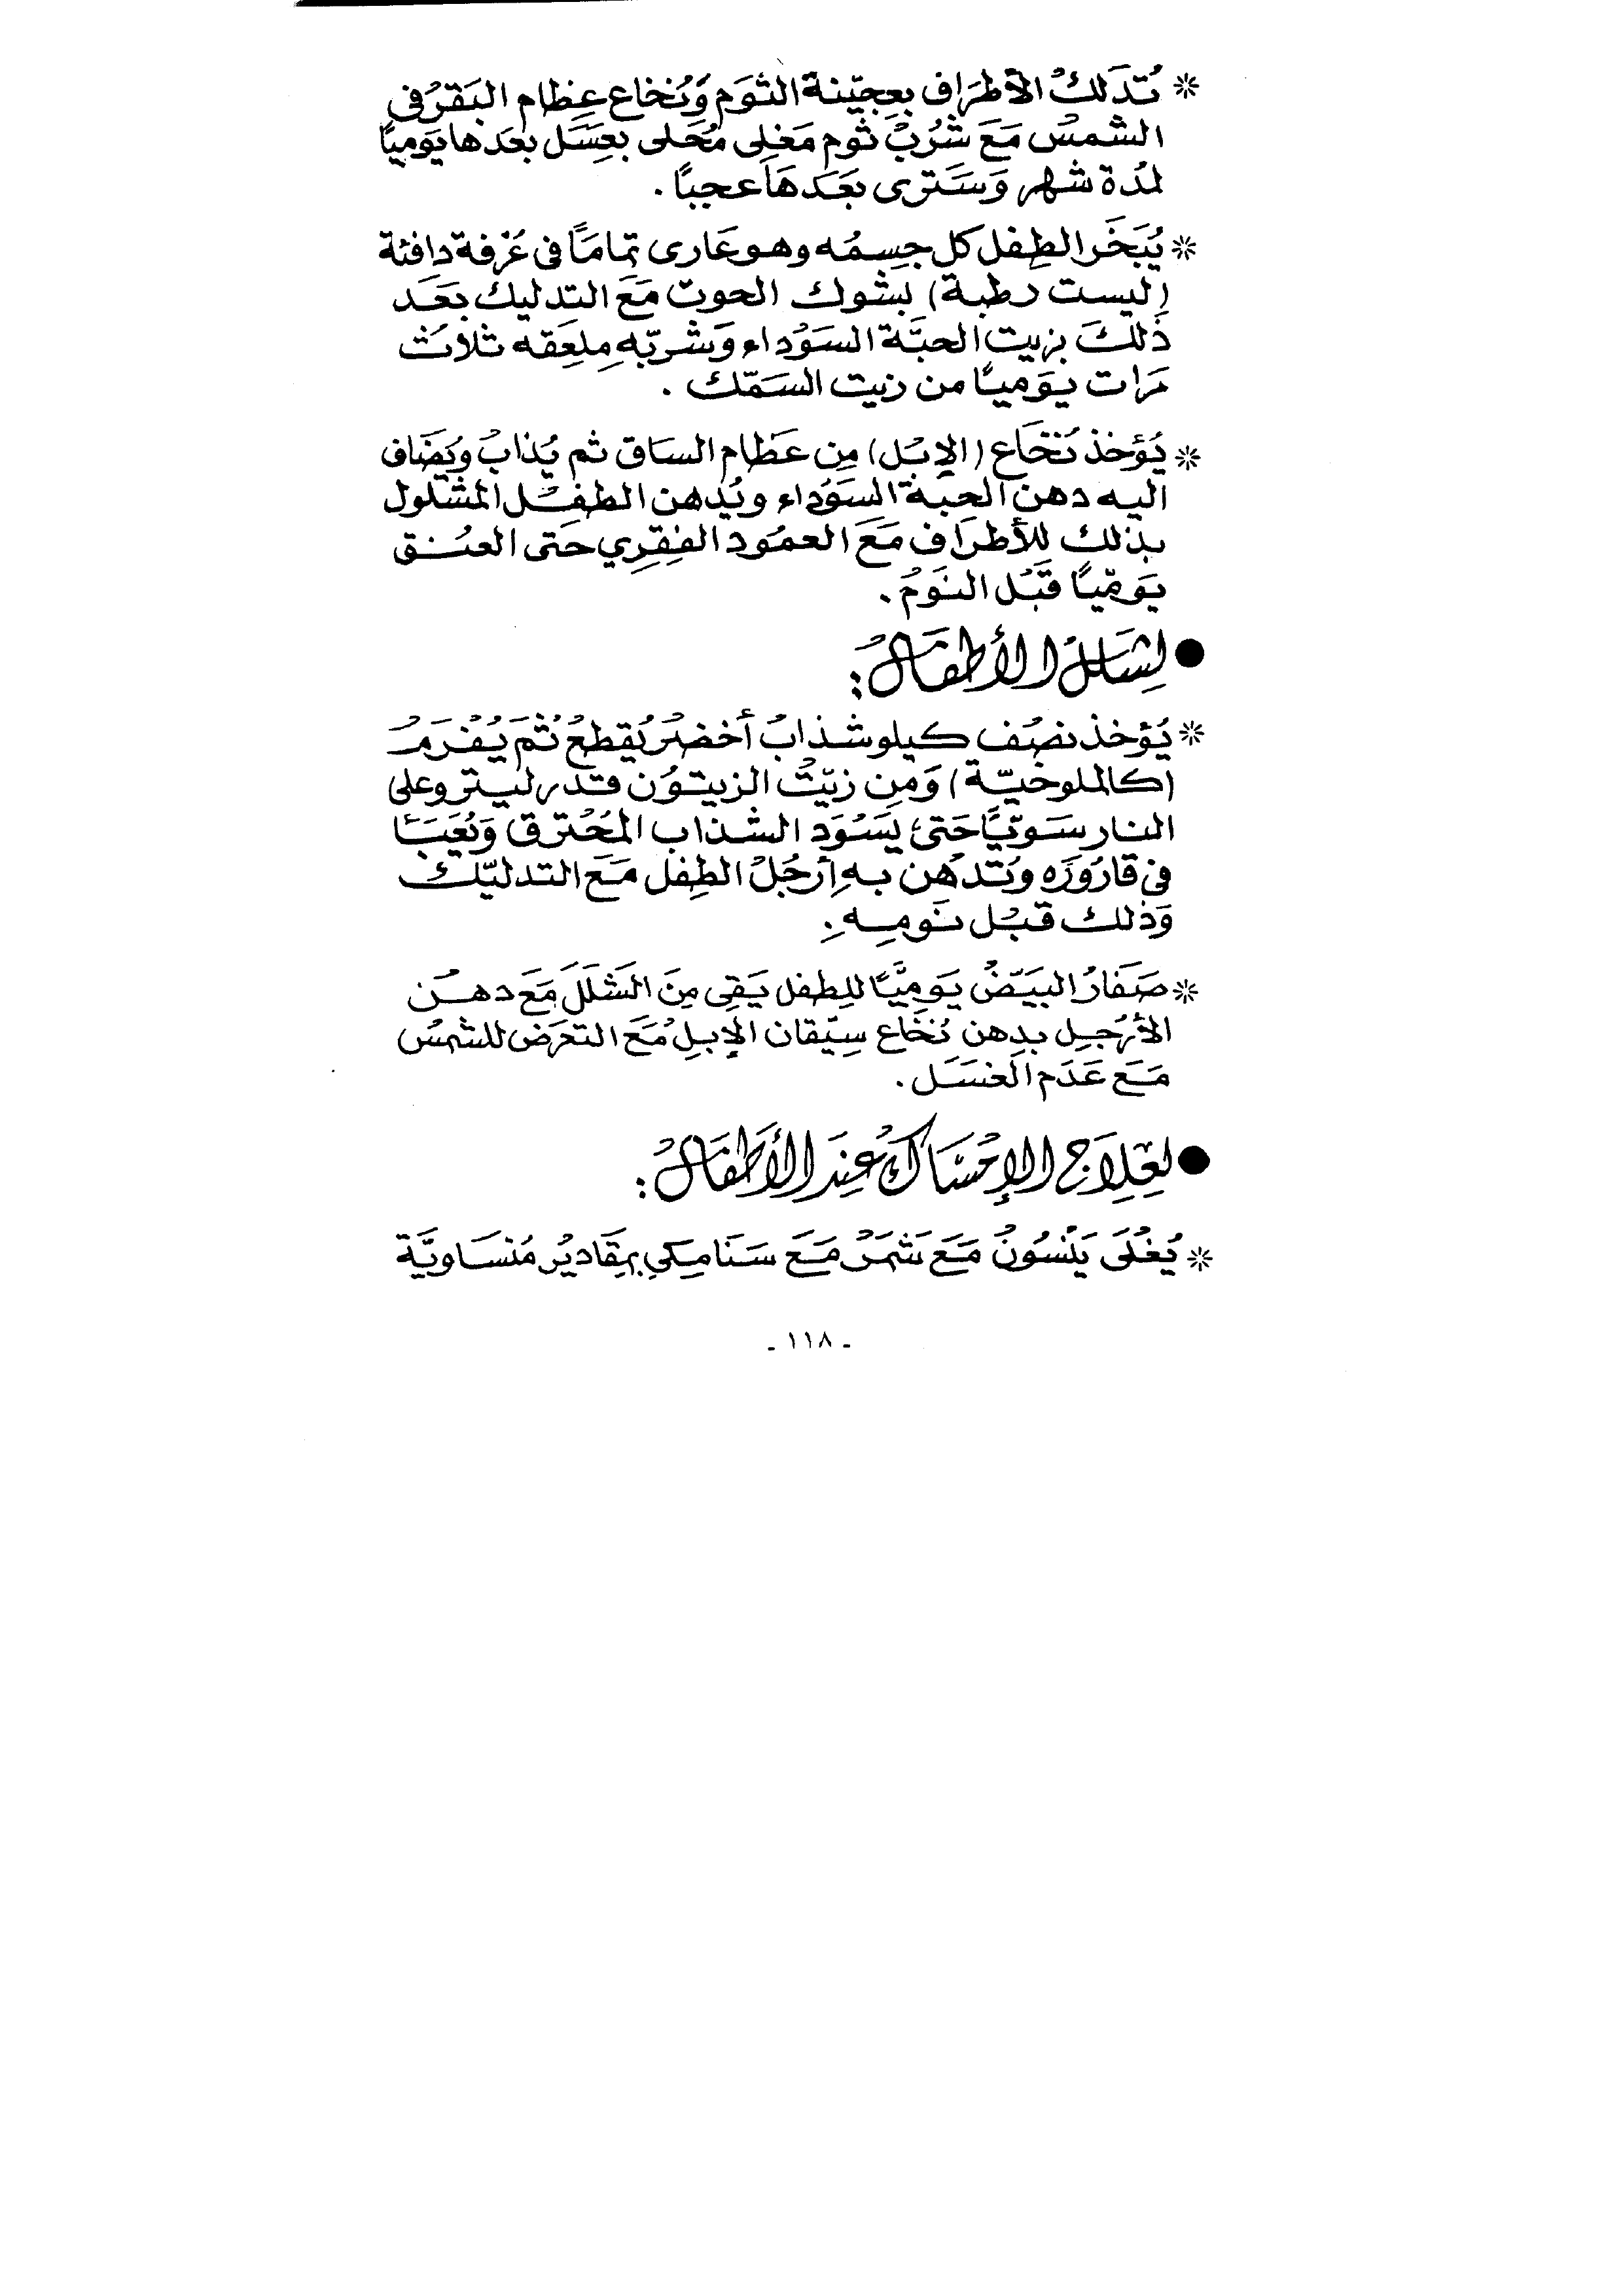 * تُدَلكُ الأطرَاف بعجيّنة الثوَم وَنُخاع عِظام البَقرُ فى
الشمسُ مَعَ شرُبْ ثوم مَغلى مُحَلى بعسَل بعَدها يَوميًا
لمُدة شهر وَسَترى بَعَدهَا عجبًا .
* يُبَخَر الطِفل كل جِسِمُه وهو عَارى تمامًا فى غرُفة دافئة
(ليست رطبة) بشوك الحوت مَعَ التدليك بعَد
ذلكَ بزيت الحبَّة السَوُداء وَشربّهِ ملعِقه ثلاث
مَرات يوَميًا من زيت السَمّك .
* يُؤخذ نُخَاع (الإبل) مِن عَظام السَاق ثم يُذابُ ويُضَاف
اليه دهن الحبة السَوُداء ويُدهن الطفل المشلول
بذلك للأطرَاف مَعَ العمُود الفِقرِي حَتى العنُق
يوَميًّا قَبُل النوَمُ .
● لِشَللُ الأطفَالُ :
* يُؤخذ نصُف كيلو شذابُ أخضرُ يُقطعُ ثمَ يُفرمُ
(كالملوخيّة) وَمن زيّتُ الزيتوُن قدر ليتر وعلى
النار سَويًّا حَتىٰ يسَوُد الشذاب المُحُترق وَيُعَبَأ
فى قارُوَرَه وَتدُهن به أرجُلُ الطِفل مَعَ التدليّك
وَذلك قبُل نوَمِه .
* صَفَارُ البيَضُ يَوميًّا للِطفل يَقى مِنَ الشَللَ مَع دهُن
الأرُجل بدِهن نُخَاع سيّقان الإبلِ مَعَ التعرَض للشمسُ
مَعَ عَدَم الغسَل .
● لعِلاَج الإمُسَاكُ عِندَ الأطَفَالُ :
* يُغُلىَ يَنُسوُنُ مَعَ شَمَرُ مَعَ سَنَامِكِي بمِقَاديُر مُتسَاويَّة
- ١١٨ -